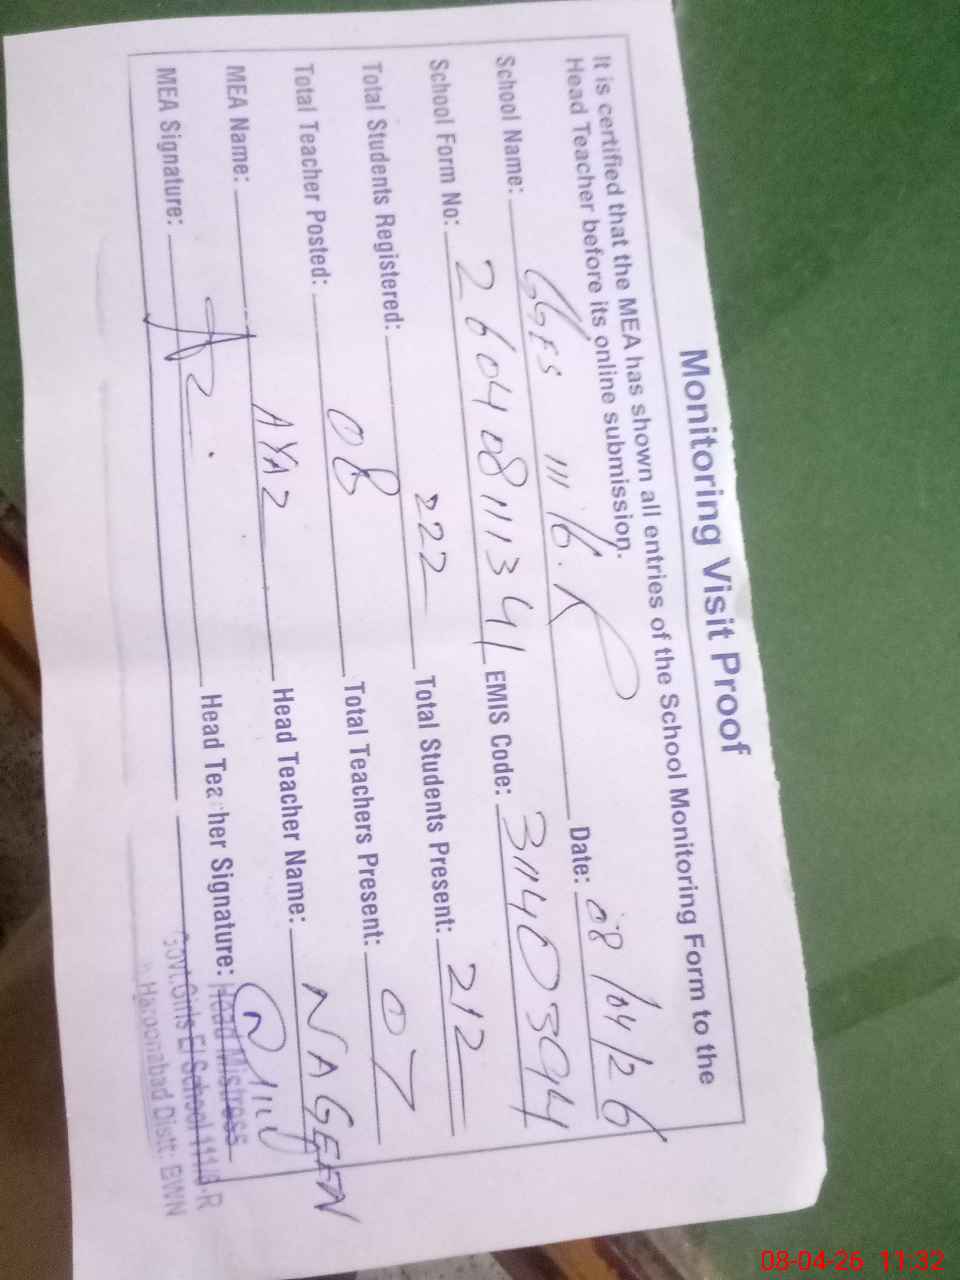 Monitoring Visit Proof
It is certified that the MEA has shown all entries of the School Monitoring Form to the
Head Teacher before its online submission.
School Name: GGES 111/6.R Date: 08/04/26
School Form No: 260408111341 EMIS Code: 31140394
Total Students Registered: 222 Total Students Present: 212
Total Teacher Posted: 08 Total Teachers Present: 07
MEA Name: AYAZ Head Teacher Name: NAGEEN
MEA Signature: Head Teacher Signature:
Head Mistress
Govt.Girls El School 111/6-R
Haroonabad Distt: BWN
08-04-26 11:32